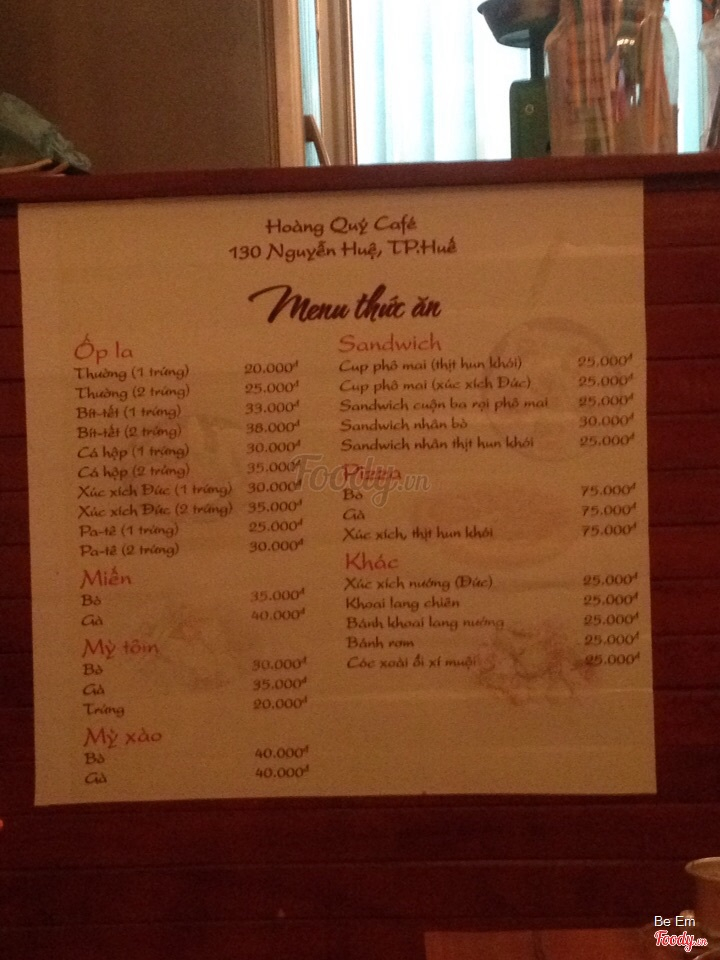 Hoàng Quý Café
130 Nguyễn Huệ, TP.Huế
Menu thức ăn
Ốp la
Thường (1 trứng) 20.000đ
Thường (2 trứng) 25.000đ
Bít-tết (1 trứng) 33.000đ
Bít-tết (2 trứng) 38.000đ
Cá hộp (1 trứng) 30.000đ
Cá hộp (2 trứng) 35.000đ
Xúc xích Đức (1 trứng) 30.000đ
Xúc xích Đức (2 trứng) 35.000đ
Pa-tê (1 trứng) 25.000đ
Pa-tê (2 trứng) 30.000đ
Miến
Bò 35.000đ
Gà 40.000đ
Mỳ tôm
Bò 30.000đ
Gà 35.000đ
Trứng 20.000đ
Mỳ xào
Bò 40.000đ
Gà 40.000đ
Sandwich
Cup phô mai (thịt hun khói) 25.000đ
Cup phô mai (xúc xích Đức) 25.000đ
Sandwich cuộn ba rọi phô mai 25.000đ
Sandwich nhân bò 30.000đ
Sandwich nhân thịt hun khói 25.000đ
Pizza
Bò 75.000đ
Gà 75.000đ
Xúc xích, thịt hun khói 75.000đ
Khác
Xúc xích nướng (Đức) 25.000đ
Khoai lang chiên 25.000đ
Bánh khoai lang nướng 25.000đ
Bánh rơm 25.000đ
Cóc xoài ổi xí muội 25.000đ
Foody.vn
Be Em
Foody.vn